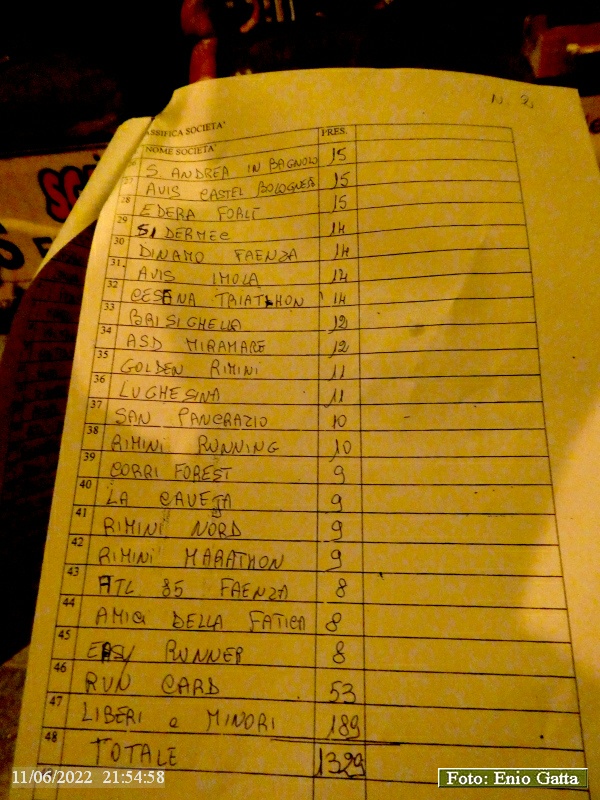 N. 2
ASSIFICA SOCIETA'
NOME SOCIETA' PRES.
26 S. ANDREA IN BAGNOLO 15
27 AVIS CASTEL BOLOGNESE 15
28 EDERA FORLI 15
29 SIDERMEC 14
30 DINAMO FAENZA 14
31 AVIS IMOLA 14
32 CESENA TRIATHLON 14
33 BRISIGHELLA 12
34 ASD MIRAMARE 12
35 GOLDEN RIMINI 11
36 LUGHESINA 11
37 SAN PANCRAZIO 10
38 RIMINI RUNNING 10
39 CORRI FOREST 9
40 LA CAVEJA 9
41 RIMINI NORD 9
42 RIMINI MARATHON 9
43 ATL 85 FAENZA 8
44 AMICI DELLA FATICA 8
45 EASY RUNNER 8
46 RUN CARD 53
47 LIBERI e MINORI 189
48 TOTALE 1329
11/06/2022 21:54:58
Foto: Enio Gatta